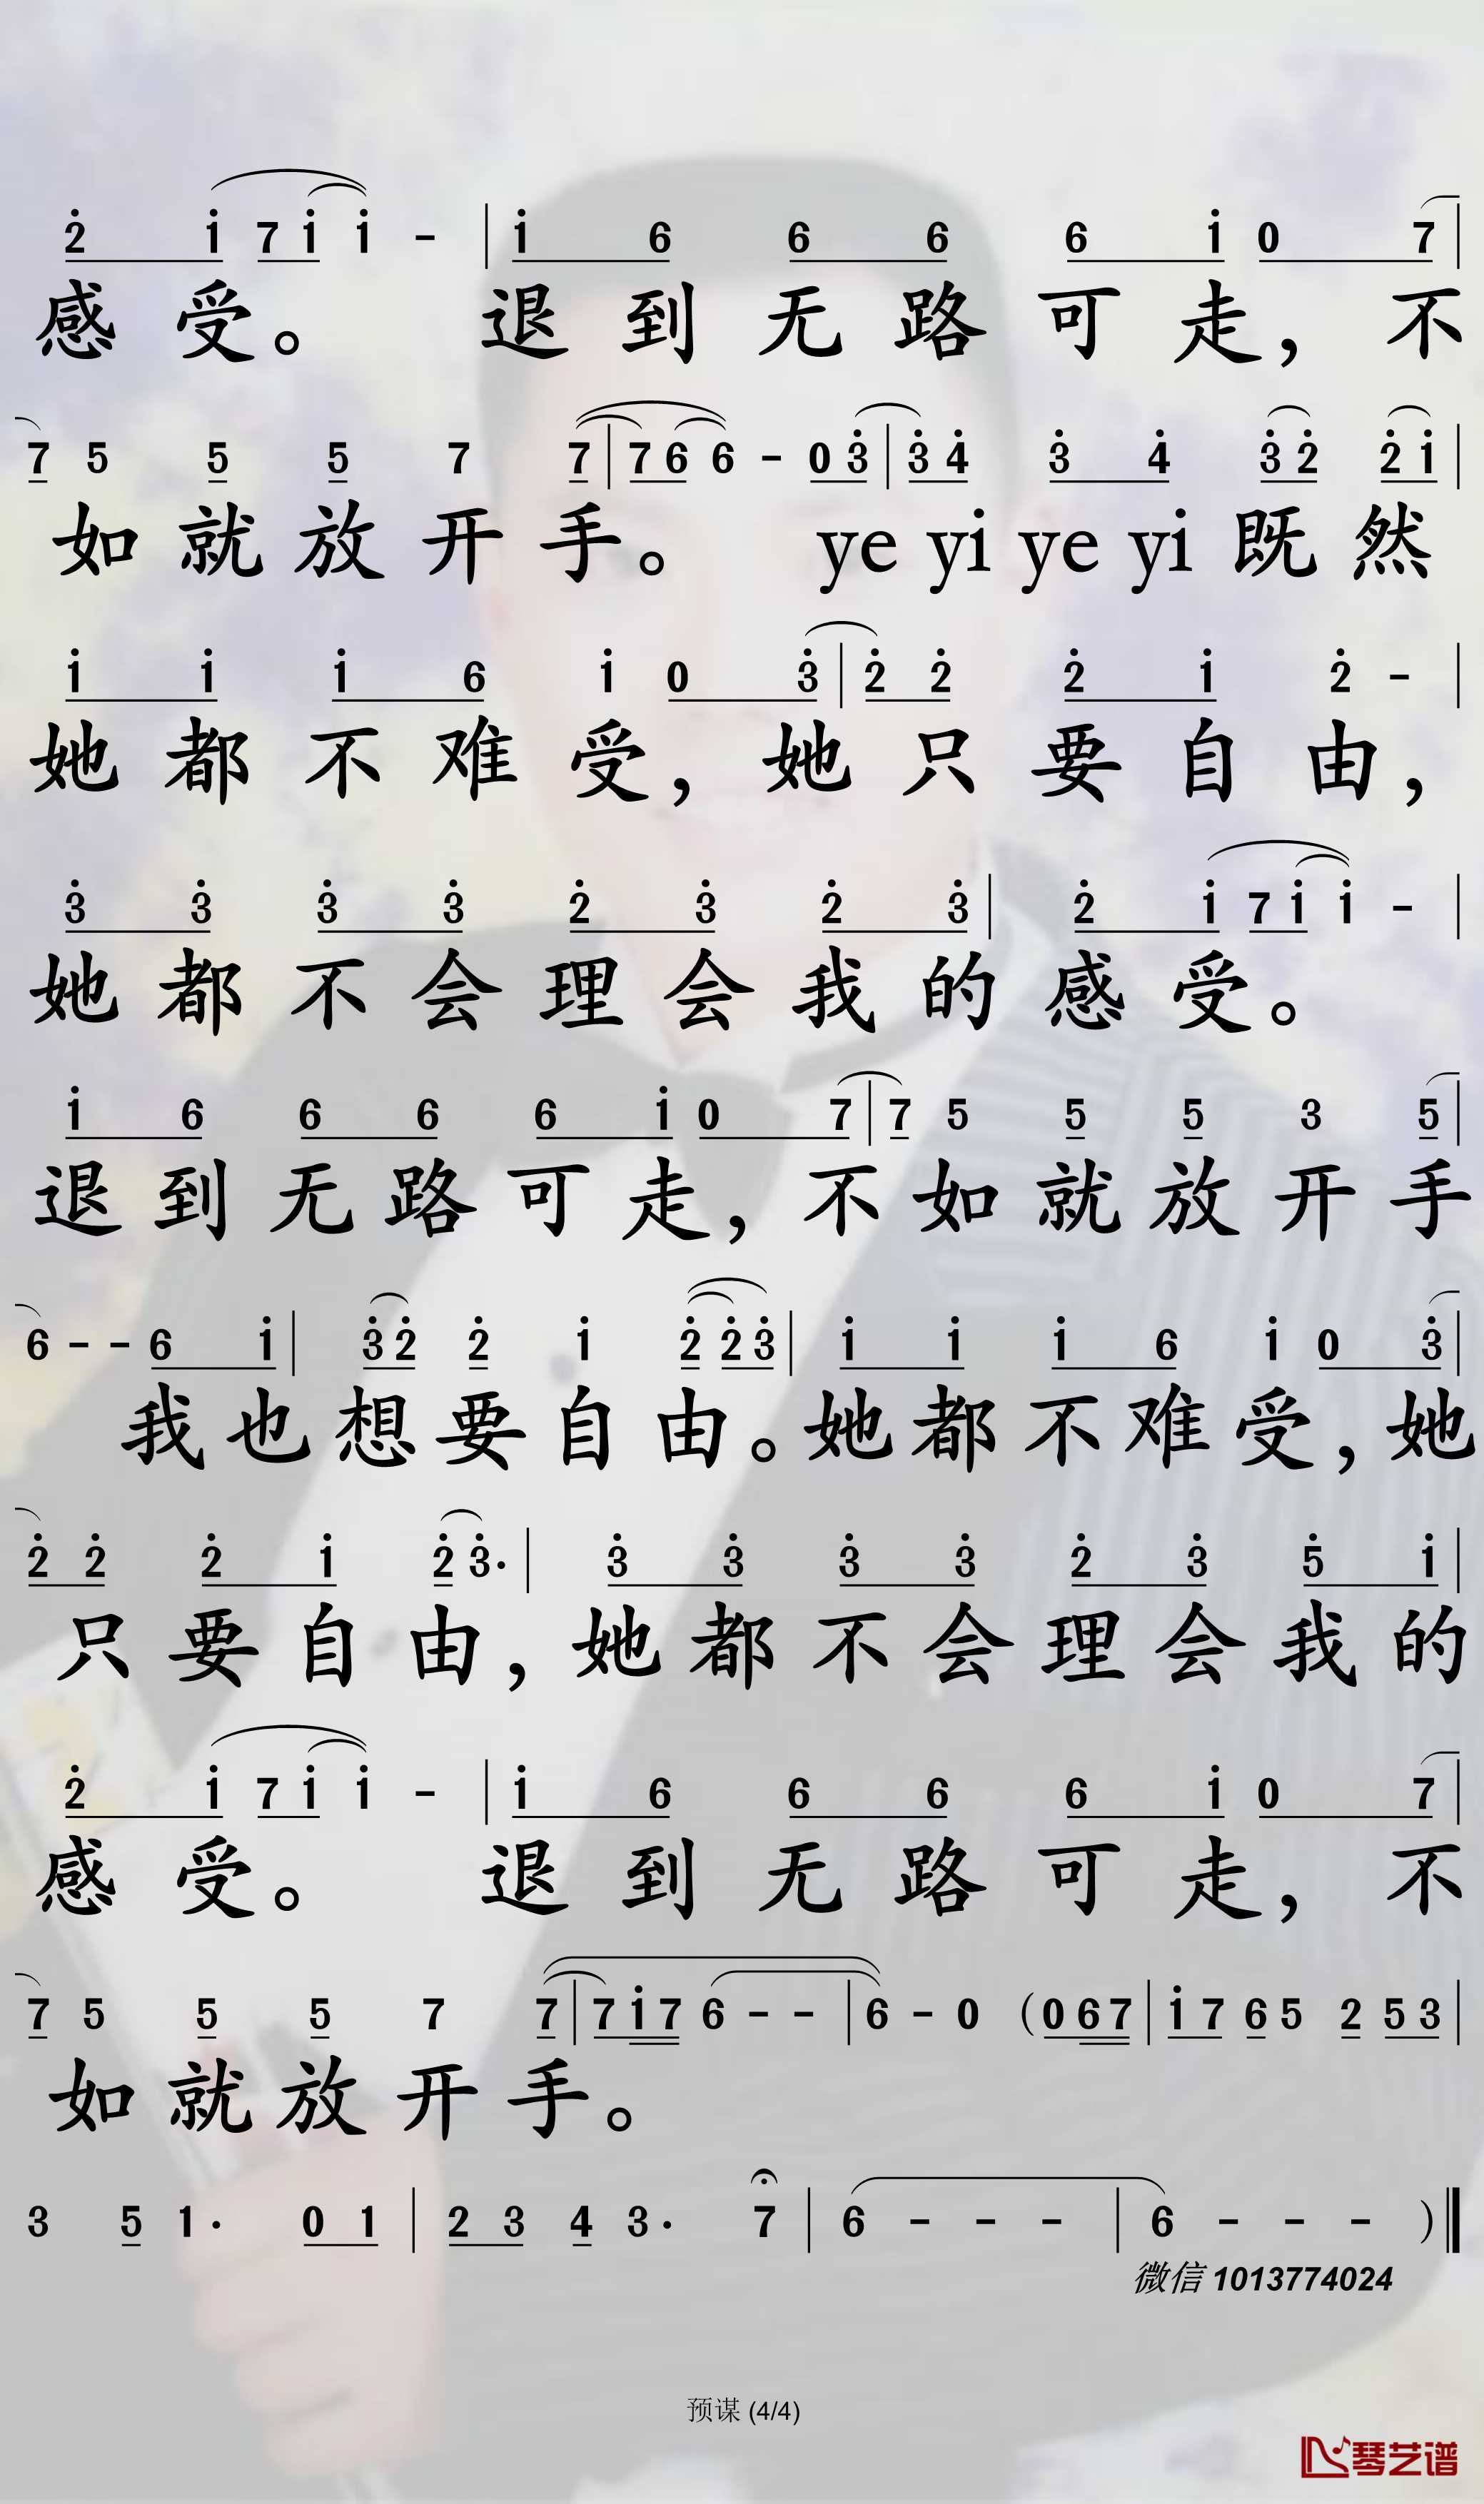 2̇ i̇ 7 i̇ i̇ - | i̇ 6 6 6 6 i̇ 0 7 |
感受。 退到无路可走，不
7 5 5 5 7 7 | 7 6 6 - 0 3̇ | 3̇ 4̇ 3̇ 4̇ 3̇ 2̇ 2̇ i̇ |
如就放开手。 ye yi ye yi 既然
i̇ i̇ i̇ 6 i̇ 0 3̇ | 2̇ 2̇ 2̇ i̇ 2̇ - |
她都不难受，她只要自由，
3̇ 3̇ 3̇ 3̇ 2̇ 3̇ 2̇ 3̇ | 2̇ i̇ 7 i̇ i̇ - |
她都不会理会我的感受。
i̇ 6 6 6 6 i̇ 0 7 | 7 5 5 5 3 5 |
退到无路可走，不如就放开手
6 - - 6 i̇ | 3̇ 2̇ 2̇ i̇ 2̇ 2̇ 3̇ | i̇ i̇ i̇ 6 i̇ 0 3̇ |
我也想要自由。她都不难受，她
2̇ 2̇ 2̇ i̇ 2̇ 3̇· | 3̇ 3̇ 3̇ 3̇ 2̇ 3̇ 5̇ i̇ |
只要自由，她都不会理会我的
2̇ i̇ 7 i̇ i̇ - | i̇ 6 6 6 6 i̇ 0 7 |
感受。 退到无路可走，不
7 5 5 5 7 7 | 7 i̇ 7 6 - - | 6 - 0 (0 6 7 | i̇ 7 6 5 2 5 3 |
如就放开手。
3 5 1· 0 1 | 2 3 4 3· 7 | 6 - - - | 6 - - - )‖
微信 1013774024
预谋 (4/4)
琴艺谱